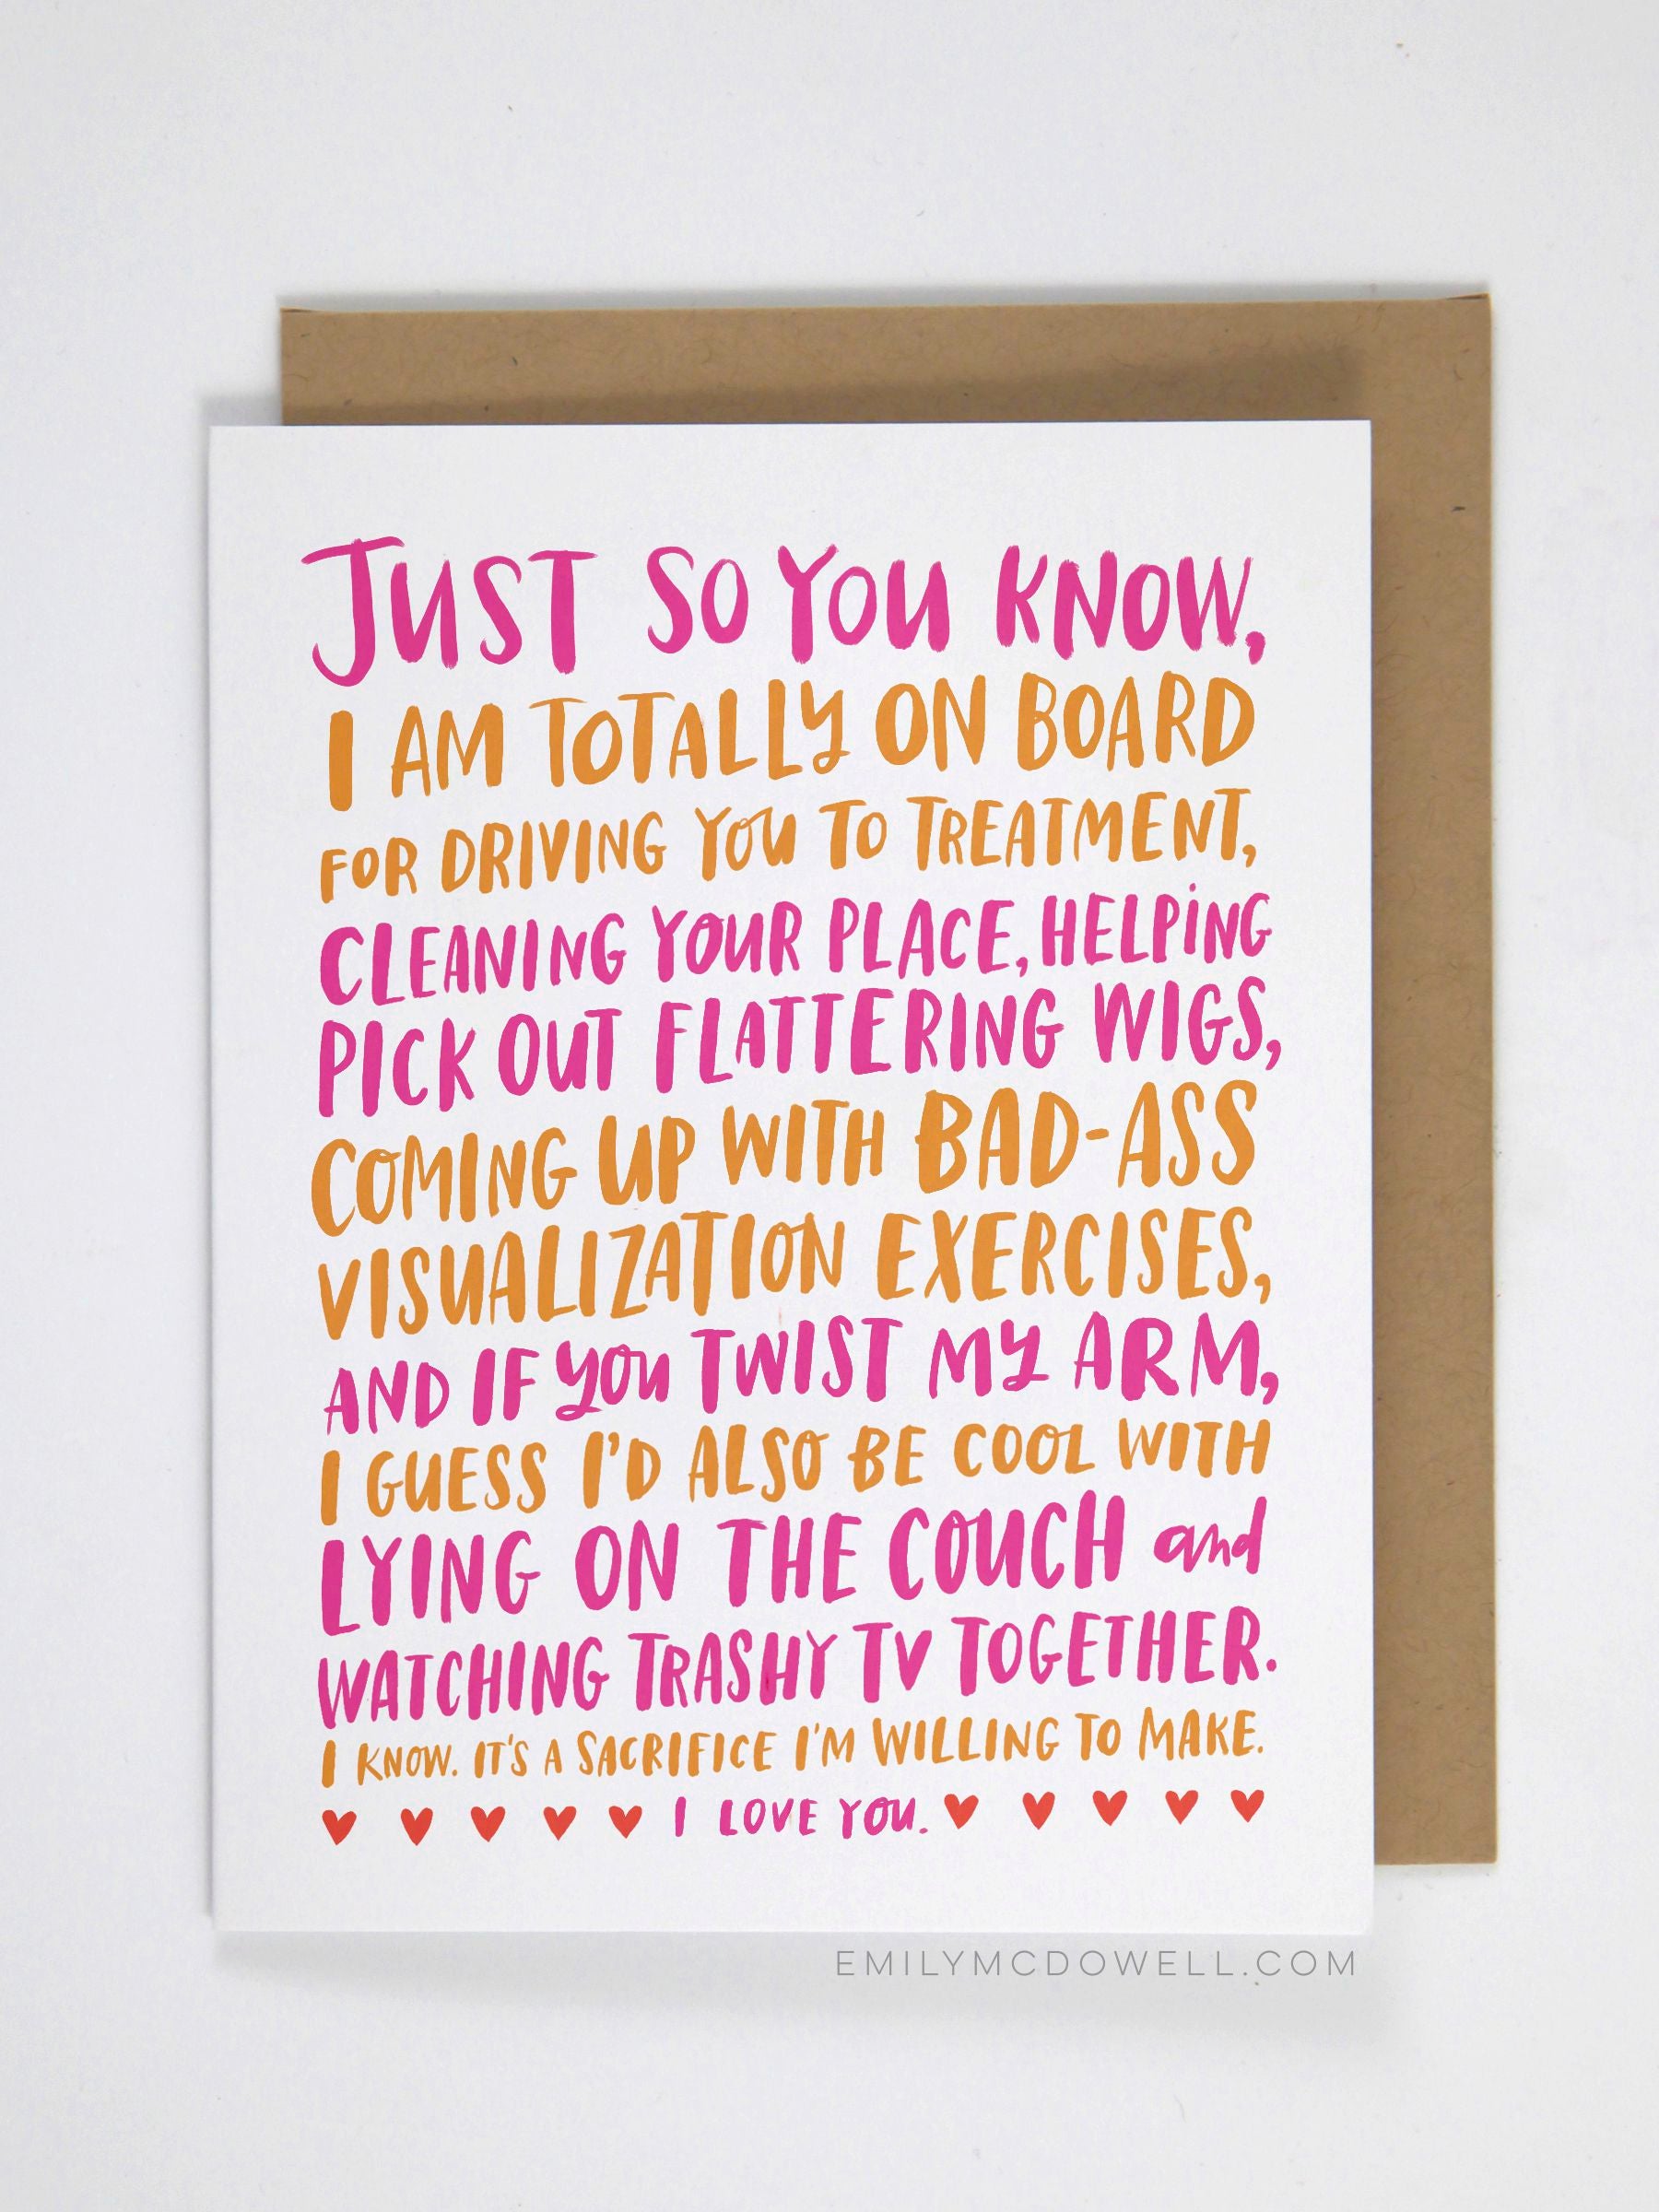 JUST SO YOU KNOW,
I AM TOTALLY ON BOARD
FOR DRIVING YOU TO TREATMENT,
CLEANING YOUR PLACE, HELPING
PICK OUT FLATTERING WIGS,
COMING UP WITH BAD-ASS
VISUALIZATION EXERCISES,
AND IF YOU TWIST MY ARM,
I GUESS I'D ALSO BE COOL WITH
LYING ON THE COUCH and
WATCHING TRASHY TV TOGETHER.
I KNOW. IT'S A SACRIFICE I'M WILLING TO MAKE.
I LOVE YOU.
EMILYMCDOWELL.COM